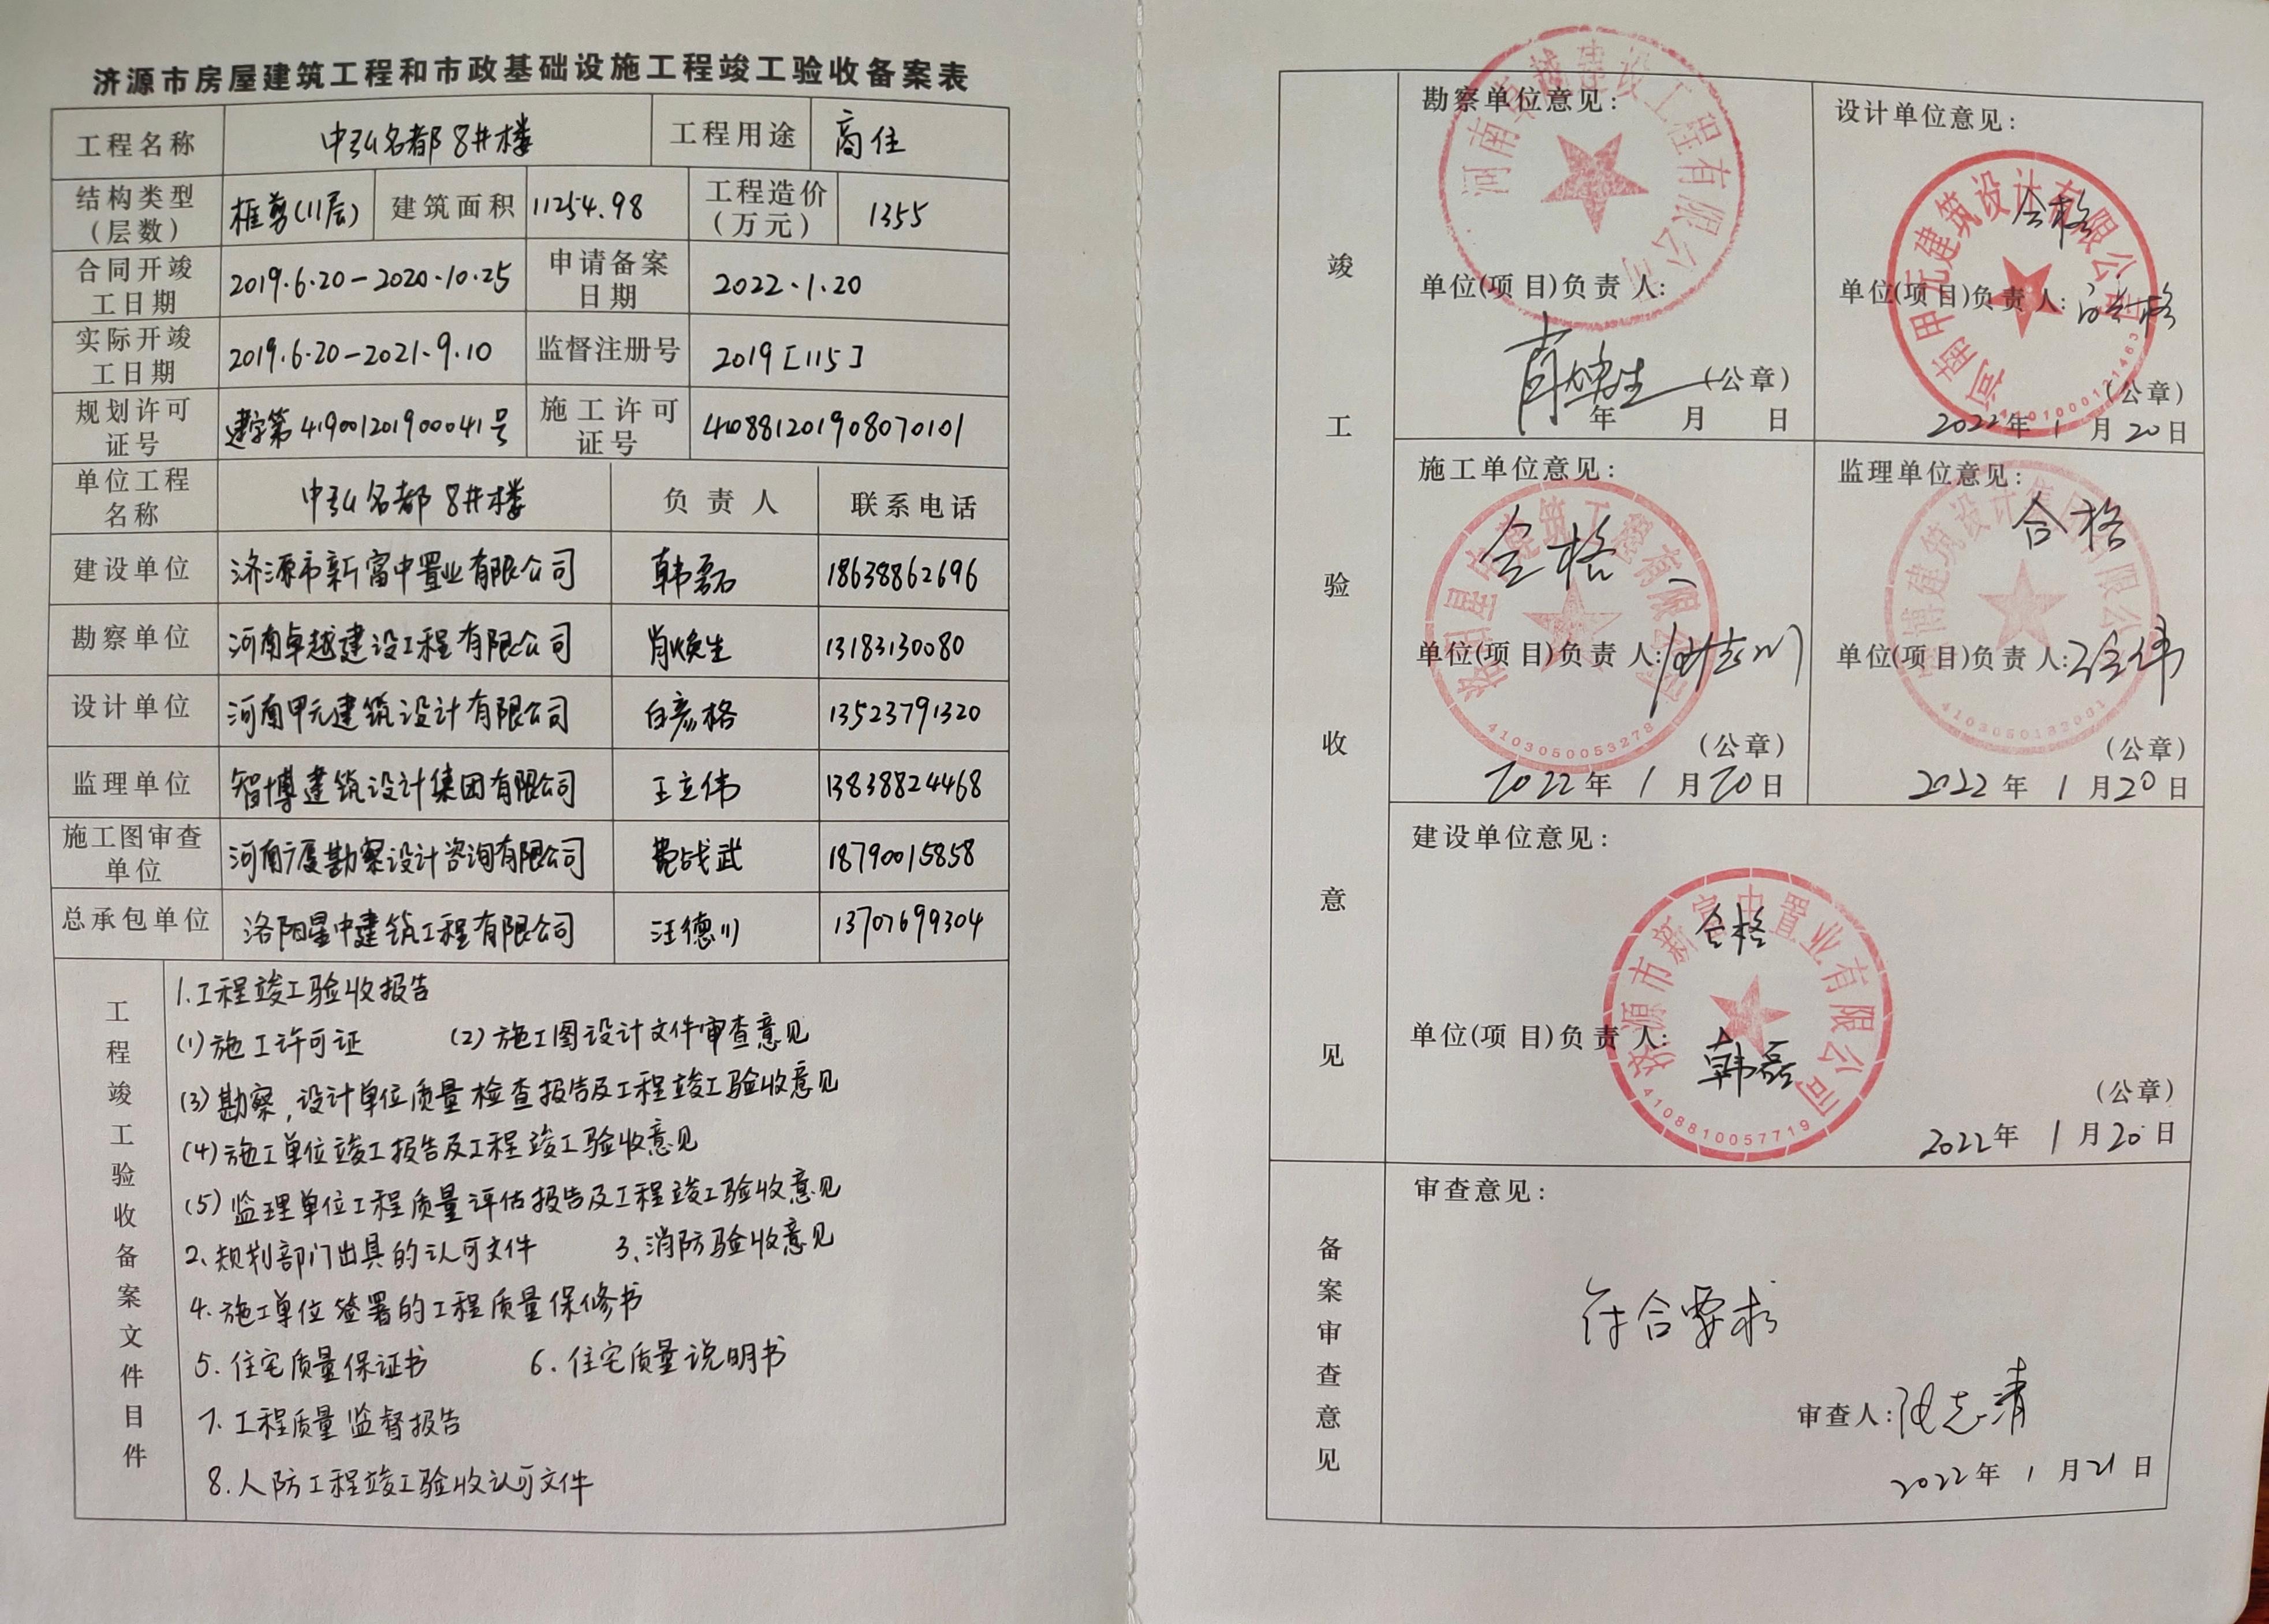 济源市房屋建筑工程和市政基础设施工程竣工验收备案表
工程名称 中弘名都8井楼 工程用途 商住
结构类型(层数) 框剪(11层) 建筑面积 11254.98 工程造价(万元) 1355
合同开竣工日期 2019.6.20-2020.10.25 申请备案日期 2022.1.20
实际开竣工日期 2019.6.20-2021.9.10 监督注册号 2019[115]
规划许可证号 建字第419001201900041号 施工许可证号 410881201908070101
单位工程名称 中弘名都8井楼 负责人 联系电话
建设单位 济源市新富中置业有限公司 韩磊 18638862696
勘察单位 河南卓越建设工程有限公司 肖焕生 13183130080
设计单位 河南甲元建筑设计有限公司 白彦格 13523791320
监理单位 智博建筑设计集团有限公司 王立伟 13838824468
施工图审查单位 河南广厦勘察设计咨询有限公司 战武 18790015858
总承包单位 洛阳星中建筑工程有限公司 汪德川 13707699304
工程竣工验收备案文件目件
1.工程竣工验收报告
(1)施工许可证 (2)施工图设计文件审查意见
(3)勘察,设计单位质量检查报告及工程竣工验收意见
(4)施工单位竣工报告及工程竣工验收意见
(5)监理单位工程质量评估报告及工程竣工验收意见
2、规划部门出具的认可文件 3、消防验收意见
4.施工单位签署的工程质量保修书
5.住宅质量保证书 6.住宅质量说明书
7.工程质量监督报告
8.人防工程竣工验收认可文件
竣工验收意见
勘察单位意见:
河南卓越建设工程有限公司
单位(项目)负责人:
肖焕生 (公章)
年 月 日
设计单位意见:
合格
河南甲元建筑设计有限公司
单位(项目)负责人: 白彦格
(公章)
2022年1月20日
施工单位意见:
合格
洛阳星中建筑工程有限公司
单位(项目)负责人:
4103050053278
(公章)
2022年1月20日
监理单位意见:
合格
智博建筑设计集团有限公司
单位(项目)负责人: 王立伟
4103050182001
(公章)
2022年1月20日
建设单位意见:
合格
济源市新富中置业有限公司
单位(项目)负责人:
韩磊
4108810057719
(公章)
2022年1月20日
备案审查意见
审查意见:
符合要求
审查人:
2022年1月21日